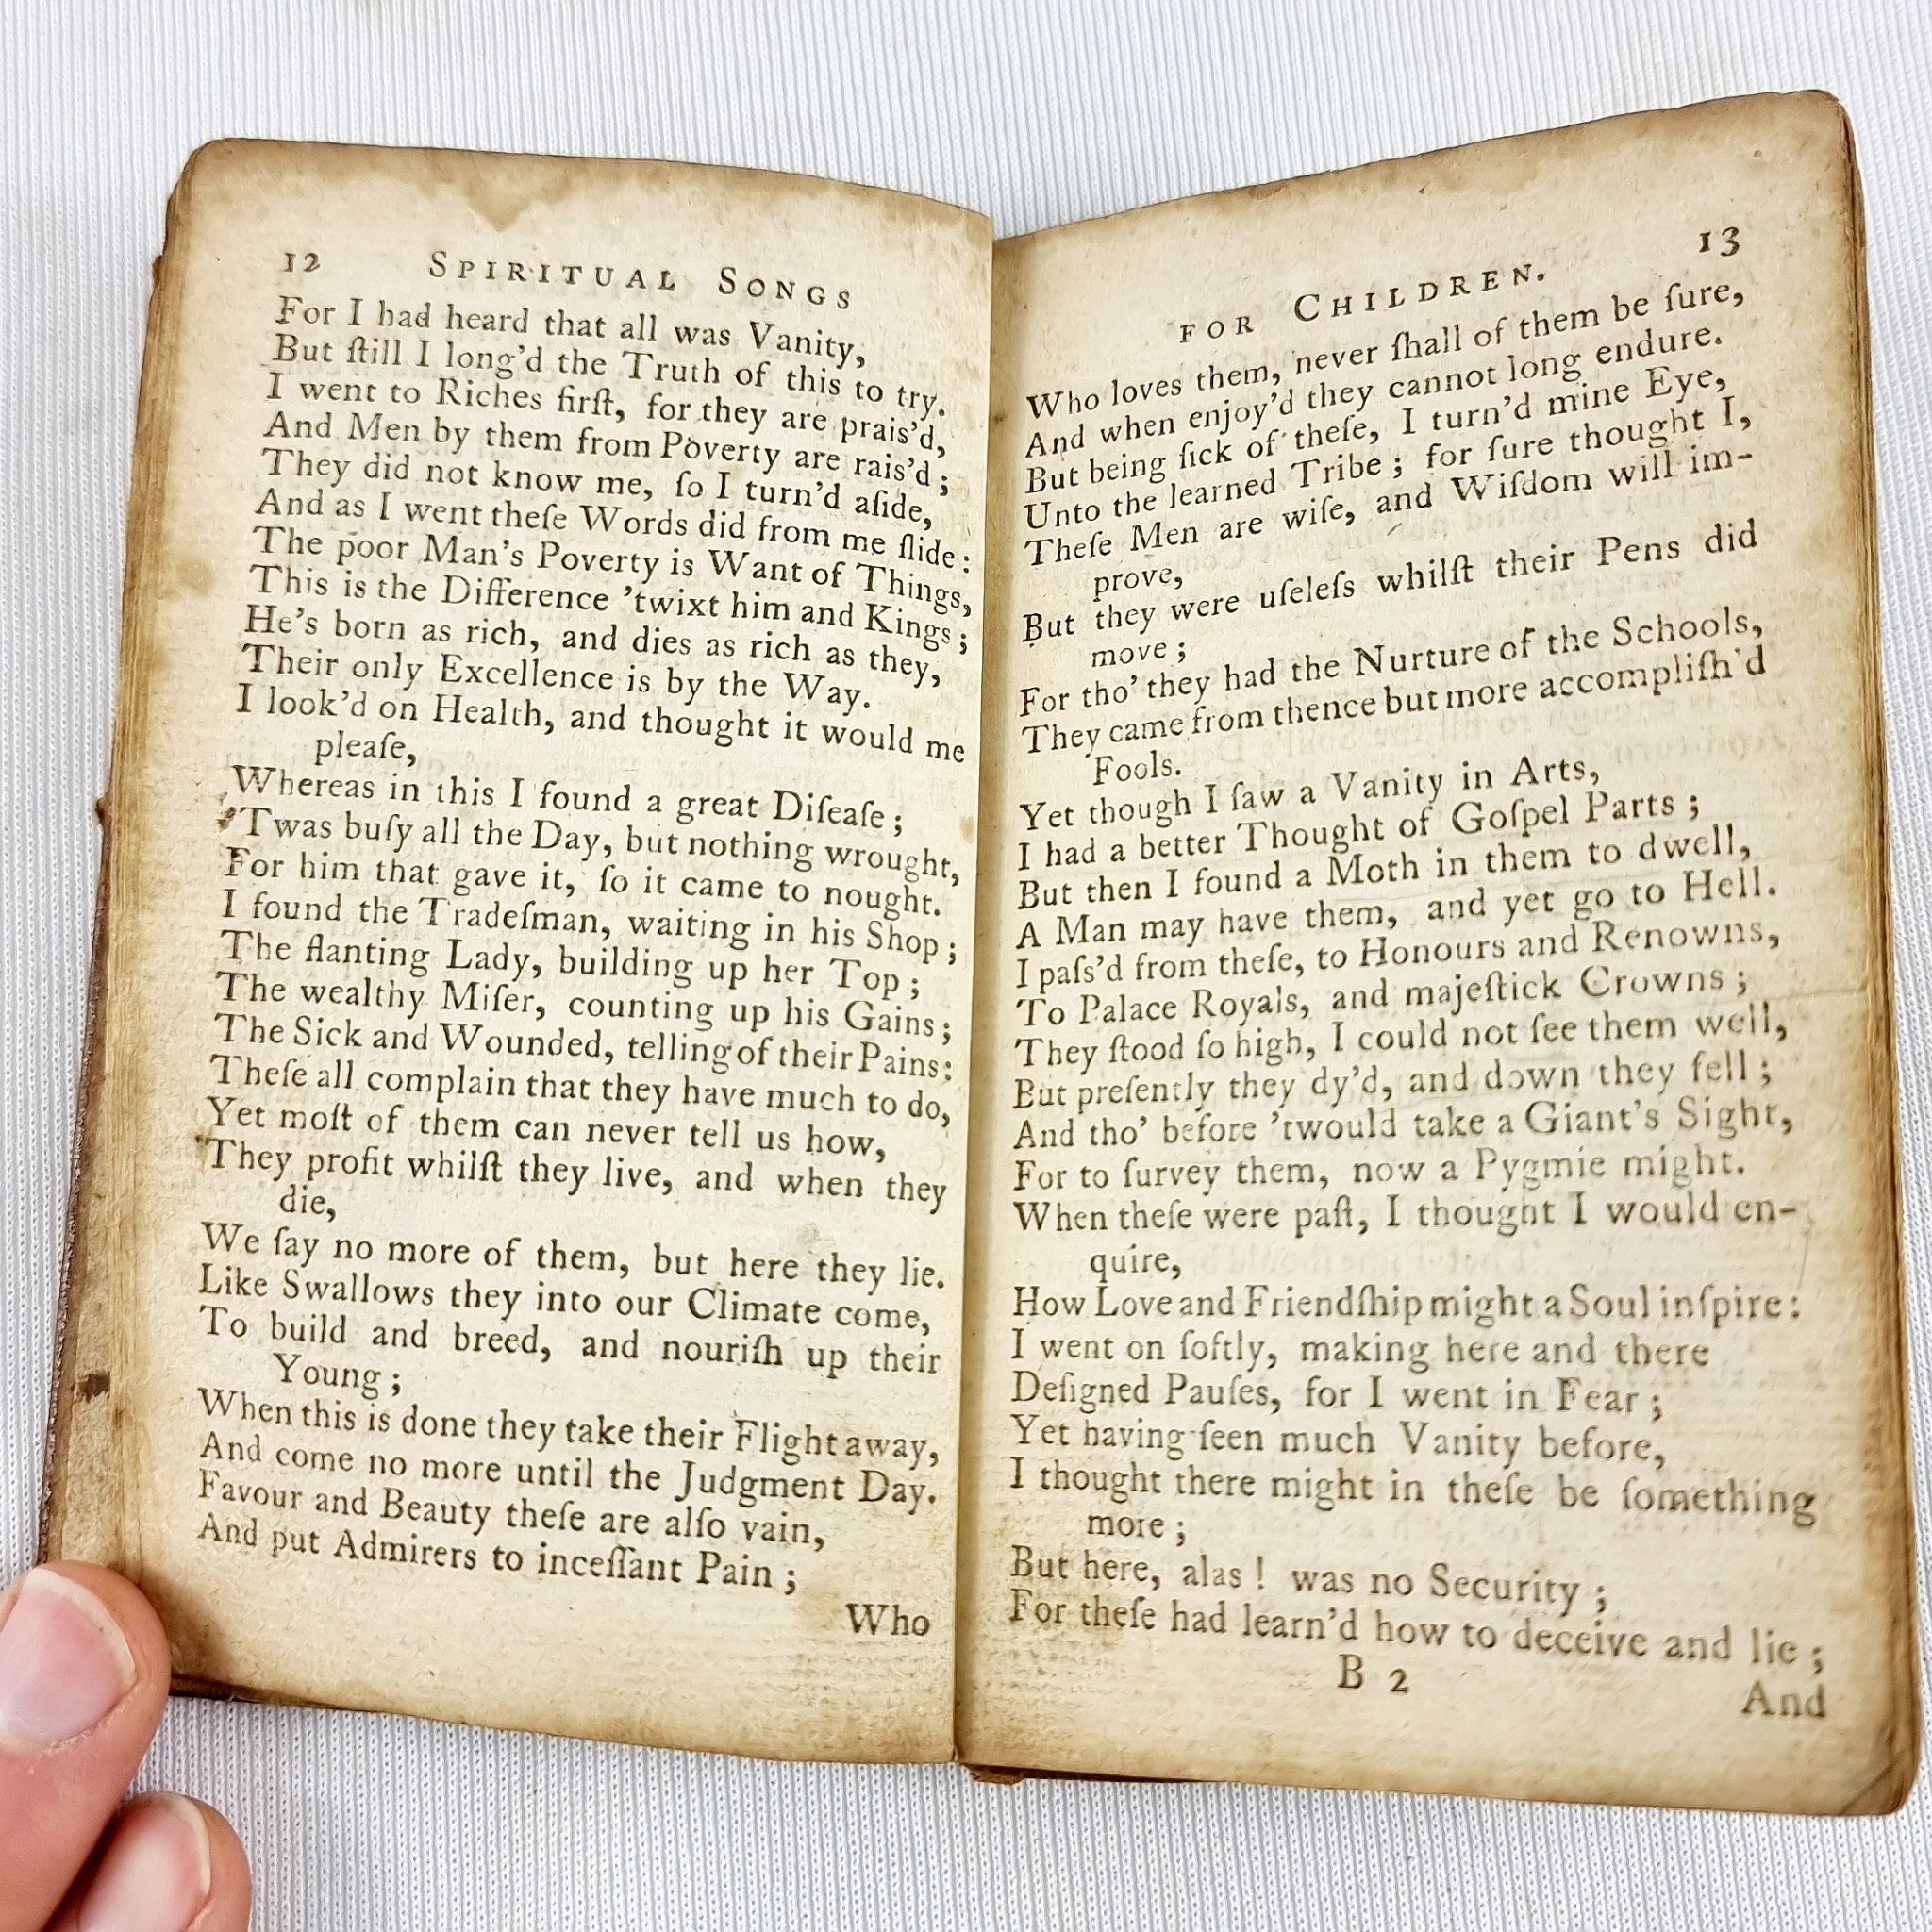 12 SPIRITUAL SONGS
For I had heard that all was Vanity,
But ſtill I long'd the Truth of this to try.
I went to Riches firſt, for they are prais'd,
And Men by them from Poverty are rais'd;
They did not know me, ſo I turn'd aſide,
And as I went theſe Words did from me ſlide:
The poor Man's Poverty is Want of Things,
This is the Difference 'twixt him and Kings;
He's born as rich, and dies as rich as they,
Their only Excellence is by the Way.
I look'd on Health, and thought it would me
pleaſe,
Whereas in this I found a great Diſeaſe;
'Twas buſy all the Day, but nothing wrought,
For him that gave it, ſo it came to nought.
I found the Tradeſman, waiting in his Shop;
The flanting Lady, building up her Top;
The wealthy Miſer, counting up his Gains;
The Sick and Wounded, telling of their Pains:
Theſe all complain that they have much to do,
Yet moſt of them can never tell us how,
They profit whilſt they live, and when they
die,
We ſay no more of them, but here they lie.
Like Swallows they into our Climate come,
To build and breed, and nouriſh up their
Young;
When this is done they take their Flight away,
And come no more until the Judgment Day.
Favour and Beauty theſe are alſo vain,
And put Admirers to inceſſant Pain;
Who
FOR CHILDREN. 13
Who loves them, never ſhall of them be ſure,
And when enjoy'd they cannot long endure.
But being ſick of theſe, I turn'd mine Eye,
Unto the learned Tribe; for ſure thought I,
Theſe Men are wiſe, and Wiſdom will im-
prove,
But they were uſeleſs whilſt their Pens did
move;
For tho' they had the Nurture of the Schools,
They came from thence but more accompliſh'd
Fools.
Yet though I ſaw a Vanity in Arts,
I had a better Thought of Goſpel Parts;
But then I found a Moth in them to dwell,
A Man may have them, and yet go to Hell.
I paſs'd from theſe, to Honours and Renowns,
To Palace Royals, and majeſtick Crowns;
They ſtood ſo high, I could not ſee them well,
But preſently they dy'd, and down they fell;
And tho' before 'twould take a Giant's Sight,
For to ſurvey them, now a Pygmie might.
When theſe were paſt, I thought I would en-
quire,
How Love and Friendſhip might a Soul inſpire:
I went on ſoftly, making here and there
Deſigned Pauſes, for I went in Fear;
Yet having ſeen much Vanity before,
I thought there might in theſe be ſomething
more;
But here, alas! was no Security;
For theſe had learn'd how to deceive and lie;
B 2
And